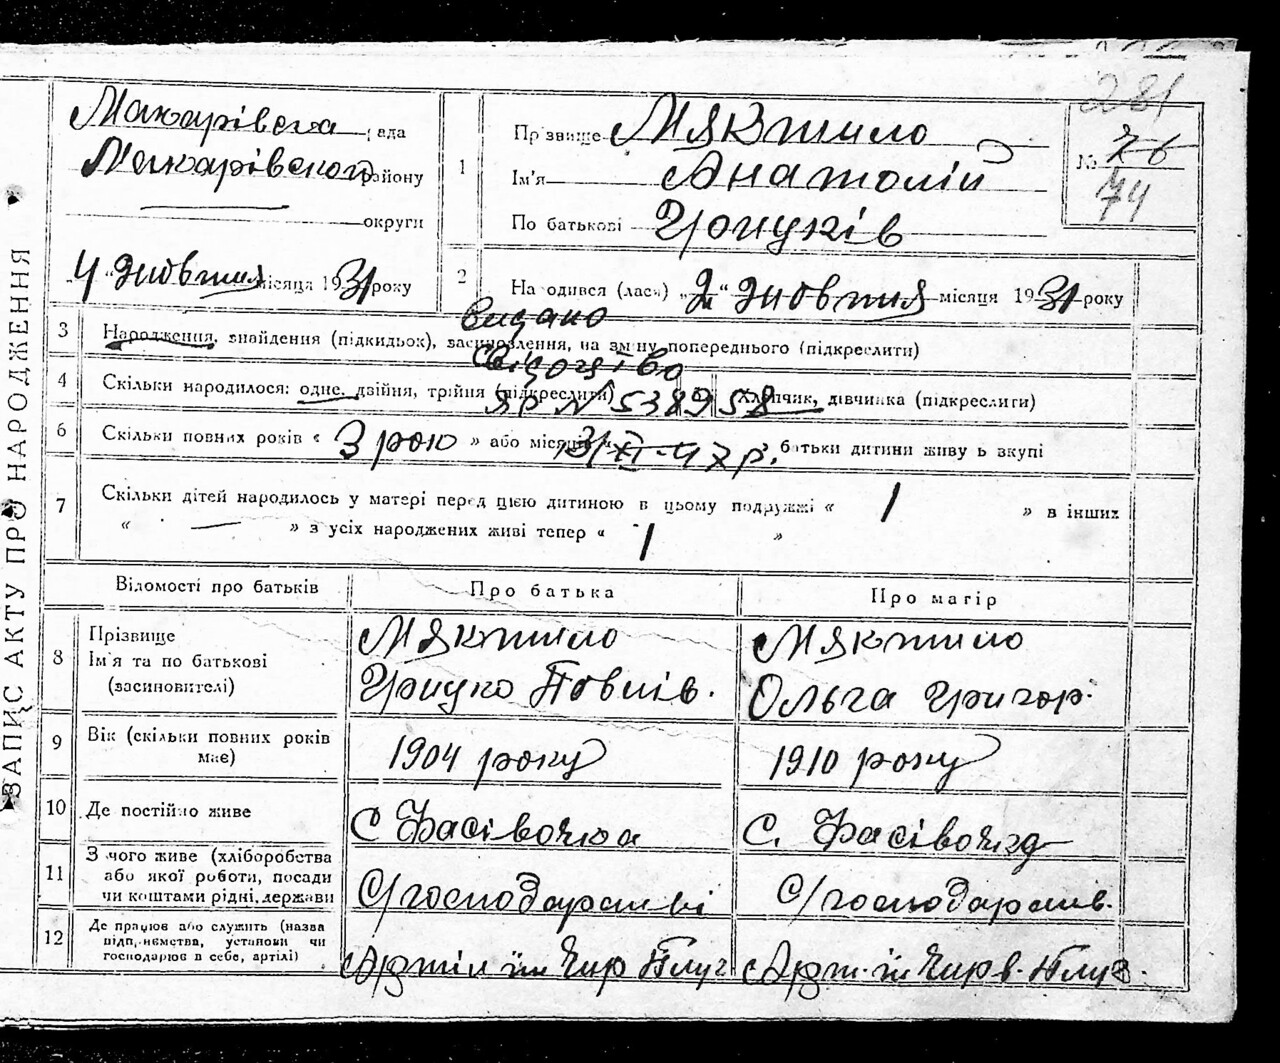 281
Макарівска рада
Макарівского району
округи
„4" жовтня місяця 1931 року
1
Прізвище Мяктило
Ім'я Анатолій
По батькові Грицьків
№ 76
74
2
На одився (лася) „2" жовтня місяця 1931 року
Видано
3 Народження, знайдення (підкидьок), засиновлення, на зміну попереднього (підкреслити)
Свідоцтво
4 Скільки народилося: одне, двійня, трійня (підкреслити) 5 Хлопчик, дівчинка (підкреслити)
ЯР № 538958
6 Скільки повних років « 3 рок » або місяців « батьки дитини живуть вкупі
3/XI-47р.
7 Скільки дітей народилось у матері перед цією дитиною в цьому подружжі « 1 » в інших
« — » з усіх народжених живі тепер « 1 »
ЗАПИС АКТУ ПРО НАРОДЖЕННЯ
Відомості про батьків Про батька Про матір
8 Прізвище Мяктило Мяктило
Ім'я та по батькові Грицко Павлів. Ольга Григор.
(засиновителі)
9 Вік (скільки повних років має) 1904 року 1910 року
10 Де постійно живе С Фасівочка С. Фасівочка
11 З чого живе (хліборобства
або якої роботи, посади
чи коштами рідні, держави С/господарстві С/господарств.
12 Де працює або служить (назва
підприємства, установи чи
господарює в себе, артілі) Артіл їм Чир Плуг Арт. їм Черв. Плуг.